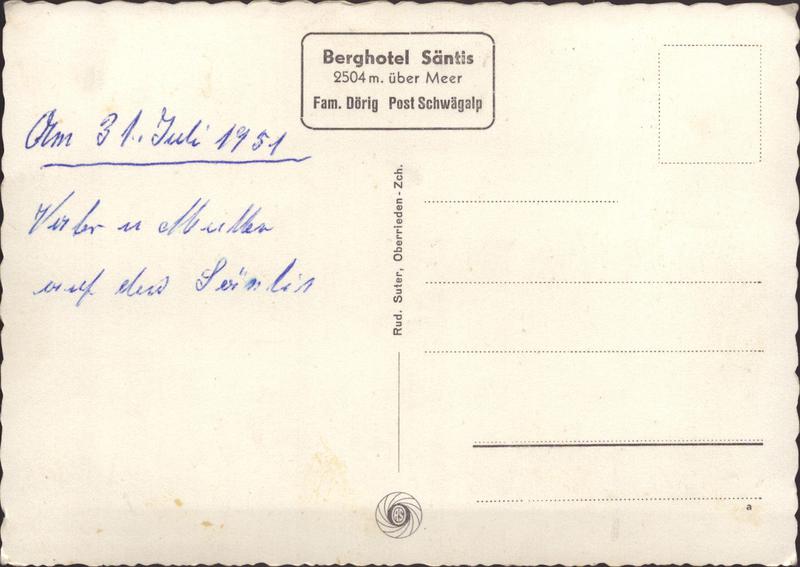 Berghotel Säntis
2504 m. über Meer
Fam. Dörig Post Schwägalp
Am 31. Juli 1951
Vater u Mutter
auf dem Säntis
Rud. Suter, Oberrieden - Zch.
a